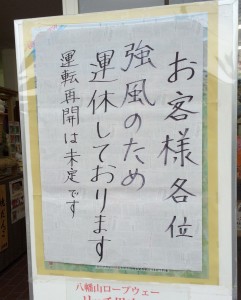 お客様各位
強風のため
運休しております
運転再開は未定です
八幡山ロープウェー